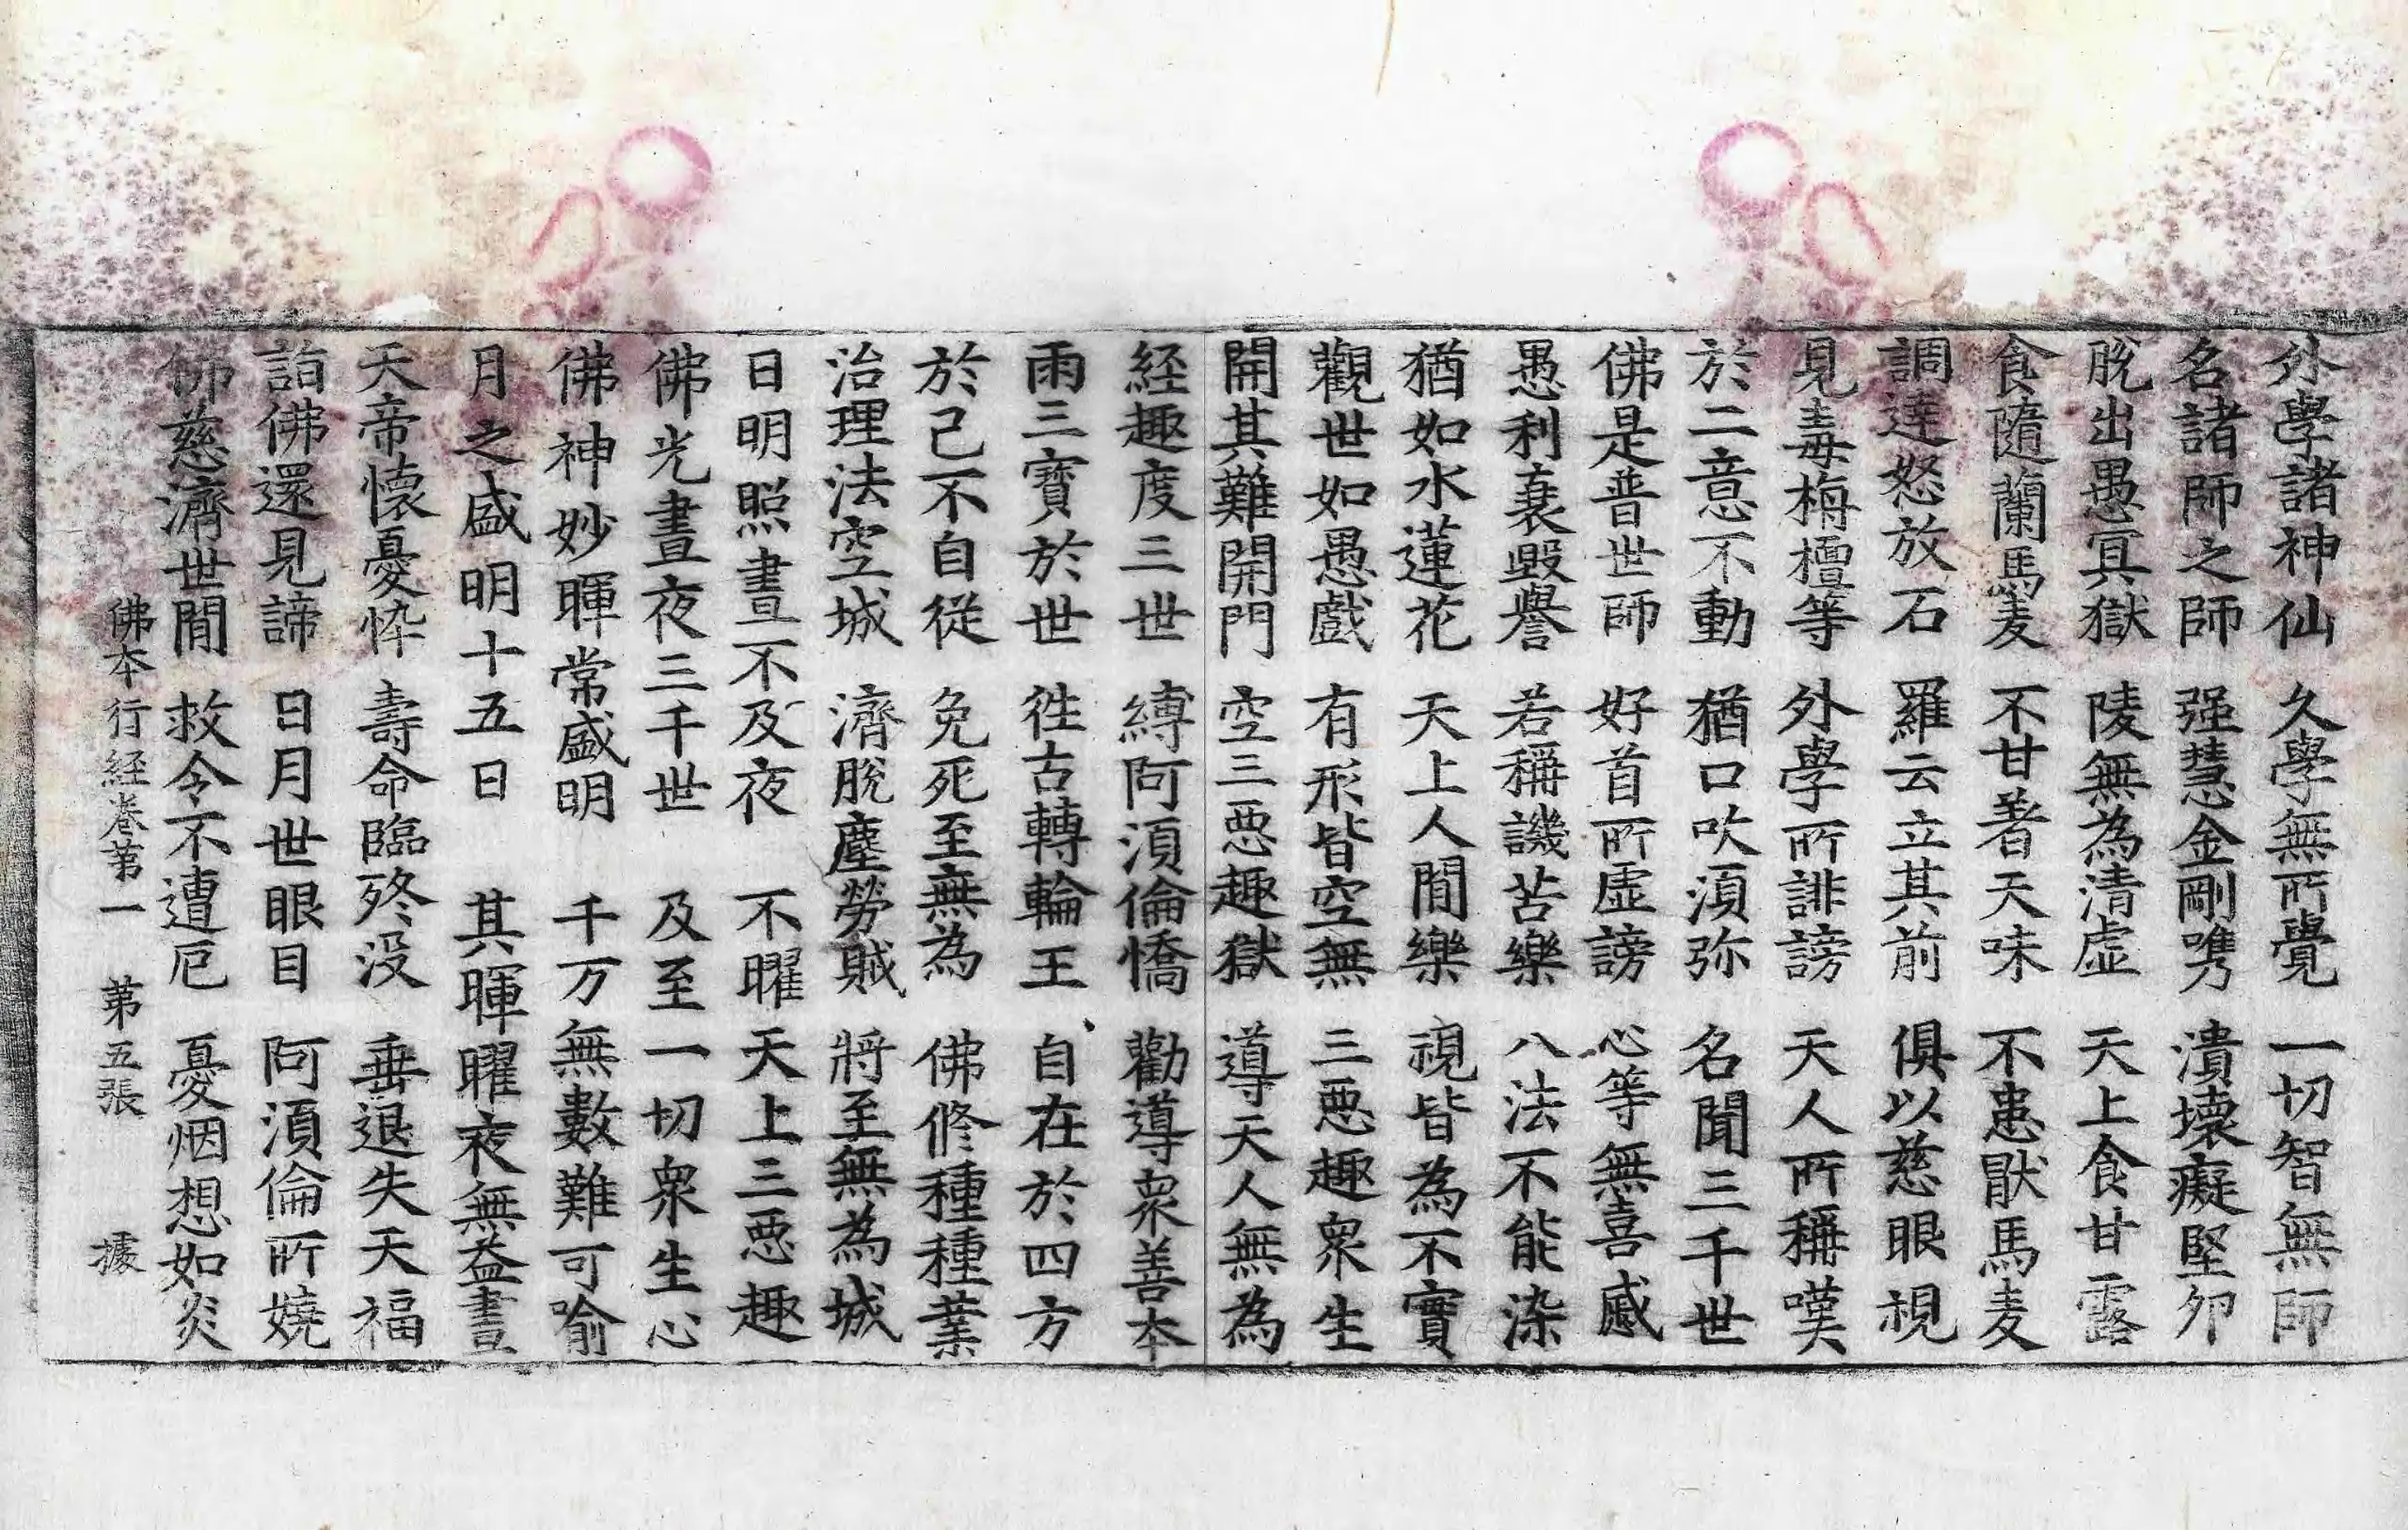 外學諸神仙　久學無所覺　一切智無師
名諸師之師　强慧金剛嘴　潰壞癡堅夘
脫出愚冥獄　陵無為清虛　天上食甘露
食隨蘭馬麦　不甘著天味　不患猒馬麦
調達怒放石　羅云立其前　俱以慈眼視
見毒栴檀等　外學所誹謗　天人所稱嘆
於二意不動　猶口吹湏弥　名聞三千世
佛是普世師　好首所虛謗　心等無喜慼
愚利衰毀譽　若稱譏苦樂　八法不能染
猶如水蓮花　天上人閒樂　視皆為不實
觀世如愚戲　有形皆空無　三惡趣衆生
開其難開門　空三惡趣獄　導天人無為
経趣度三世　縛阿湏倫憍　勸導衆善本
雨三寶於世　徃古轉輪王　自在於四方
於己不自從　免死至無為　佛修種種業
治理法空城　濟脫塵勞賊　將至無為城
日明照晝不及夜　不曜天上三惡趣
佛光晝夜三千世　及至一切衆生心
佛神妙暉常盛明　千万無數難可喻
月之盛明十五日　其暉曜夜無益晝
天帝懷憂忰　壽命臨終没　垂退失天福
詣佛還見諦　日月世眼目　阿湏倫所嬈
佛慈濟世閒　救令不遭厄　憂烟想如炎
佛本行経卷苐一　苐五張　據